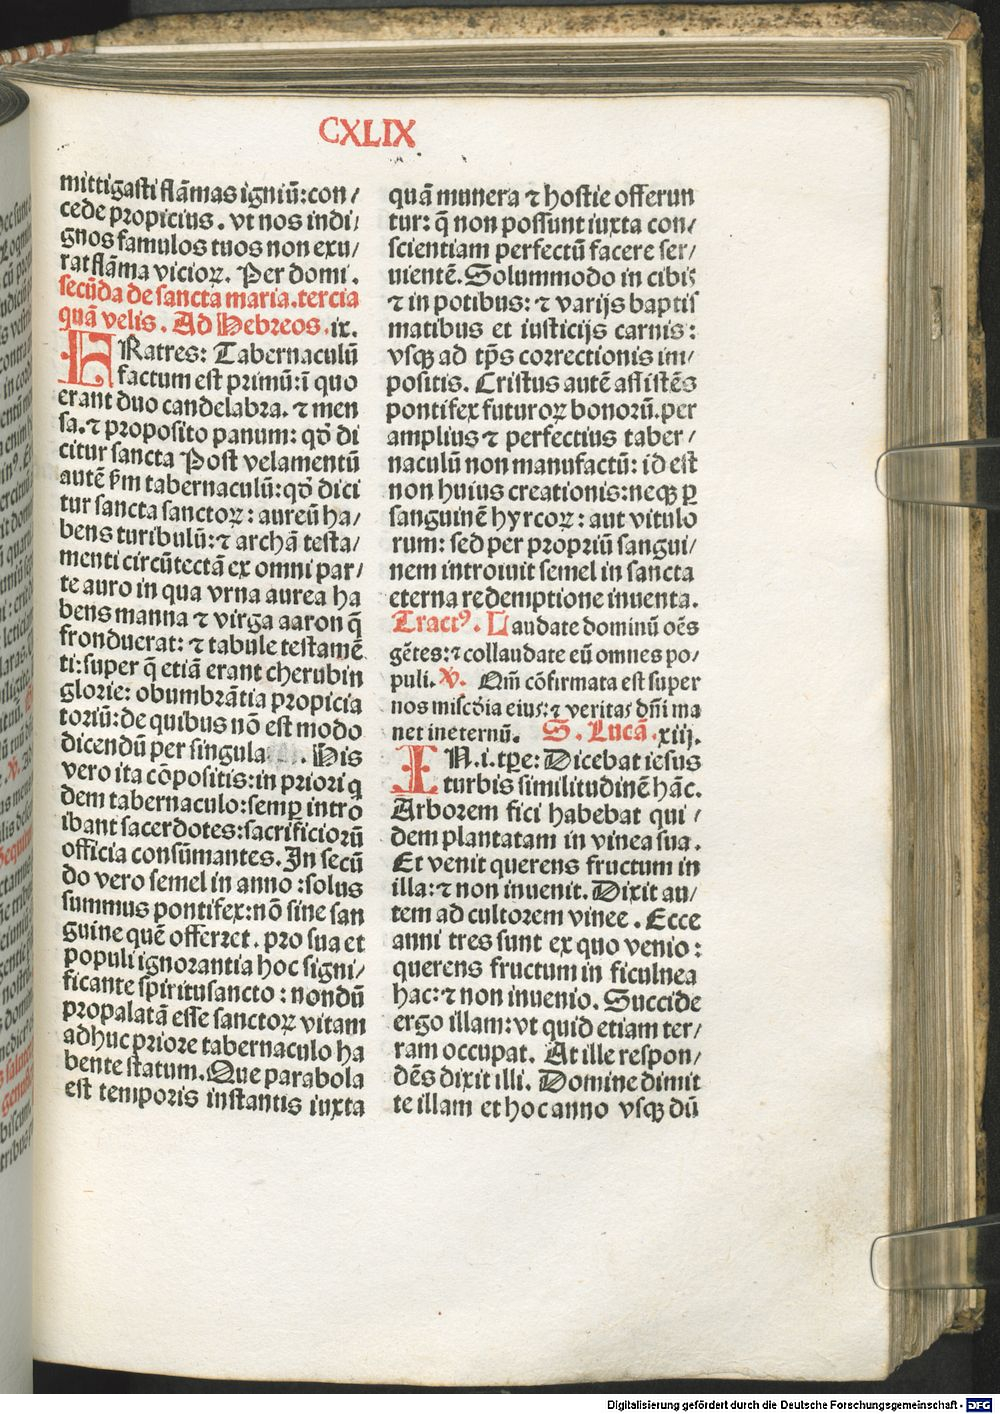 CXLIX
mittigasti flãmas igniũ: con/
cede propicius. vt nos indi/
gnos famulos tuos non exu/
rat flãma vicioꝝ. Per domi.
secũda de sancta maria. tercia
quã velis. Ad Hebreos. ix.
FRatres: Tabernaculũ
factum est primũ: ĩ quo
erant duo candelabra. ⁊ men
sa. ⁊ proposito panum: qđ di
citur sancta Post velamentũ
autẽ scđm tabernaculũ: qđ dici
tur sancta sanctoꝝ: aureũ ha/
bens turibulũ: ⁊ archã testa/
menti circũtectã ex omni par/
te auro in qua vrna aurea ha
bens manna ⁊ virga aaron q̃
fronduerat: ⁊ tabule testamẽ
ti: super q̃ etiã erant cherubin
glorie: obumbrãtia propicia
toriũ: de quibus nõ est modo
dicendũ per singula. His
vero ita cõpositis: in priori q
dem tabernaculo: semꝑ intro
ibant sacerdotes: sacrificiorũ
officia consũmantes. In secũ
do vero semel in anno: solus
summus pontifex: nõ sine san
guine quẽ offerret. pro sua et
populi ignorantia hoc signi/
ficante spiritusancto: nondũ
propalatã esse sanctoꝝ vitam
adhuc priore tabernaculo ha
bente statum. Que parabola
est temporis instantis iuxta
quã munera ⁊ hostie offerun
tur: q̃ non possunt iuxta con/
scientiam perfectũ facere ser/
uientẽ. Solummodo in cibis
⁊ in potibus: ⁊ varijs baptis
matibus et iusticijs carnis:
vsqꝫ ad tp̃s correctionis im/
positis. Cristus autẽ assistẽs
pontifex futuroꝝ bonorũ. per
amplius ⁊ perfectius taber/
naculũ non manufactũ: id est
non huius creationis: neqꝫ ꝑ
sanguinẽ hyrcoꝝ: aut vitulo
rum: sed per propriũ sangui/
nem introiuit semel in sancta
eterna redemptione inuenta.
Tractꝰ. Laudate dominũ oẽs
gẽtes: ⁊ collaudate eũ omnes po/
puli. ℣. Qm̃ cõfirmata est super
nos miscđia eius: ⁊ veritas dñi ma
net ineternũ. S. Lucã. xiij.
IN. i. tꝑe: Dicebat iesus
turbis similitudinẽ hãc.
Arborem fici habebat qui/
dem plantatam in vinea sua.
Et venit querens fructum in
illa: ⁊ non inuenit. Dixit au/
tem ad cultorem vinee. Ecce
anni tres sunt ex quo venio:
querens fructum in ficulnea
hac: ⁊ non inuenio. Succide
ergo illam: vt quid etiam ter/
ram occupat. At ille respon/
dẽs dixit illi. Domine dimit
te illam et hoc anno vsqꝫ dũ
Digitalisierung gefördert durch die Deutsche Forschungsgemeinschaft - DFG